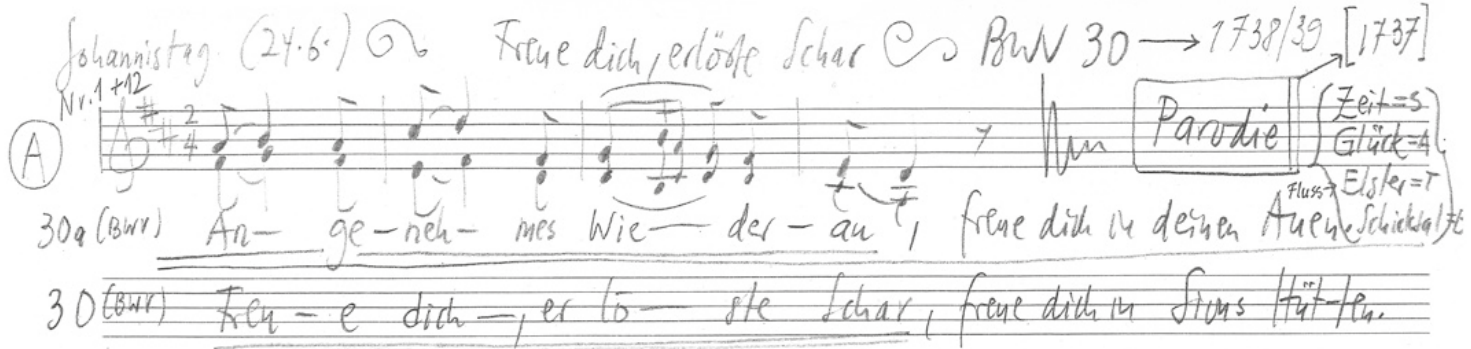 Johannistag (24.6.) Freue dich, erlöste Schar BWV 30 → 1738/39 [1737]
Nr. 1 + 12
A 2 4 Parodie
Zeit = S
Glück = A
Fluss → Elster = T
Schicksal =
30a (BWV) An – ge – neh – mes Wie — der – au, freue dich in deinen Auen
30 (BWV) Freu – e dich –, er lö — ste Schar, freue dich in Sions Hüt-ten.